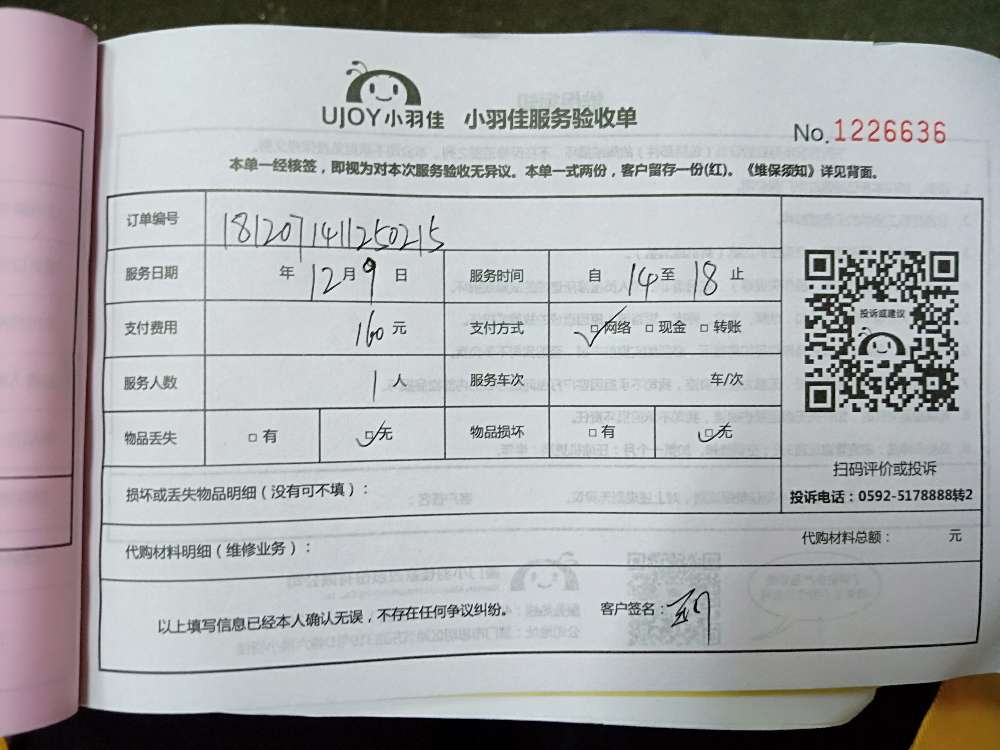 UJOY小羽佳 小羽佳服务验收单
No.1226636
本单一经核签，即视为对本次服务验收无异议。本单一式两份，客户留存一份(红)。《维保须知》详见背面。
订单编号 1812071411250215
服务日期 年 12月 9 日 服务时间 自 14 至 18 止
支付费用 160 元 支付方式 □网络 □现金 □转账
投诉或建议
服务人数 1 人 服务车次 车/次
物品丢失 □有 □无 物品损坏 □有 □无
扫码评价或投诉
投诉电话：0592-5178888转2
损坏或丢失物品明细（没有可不填）：
代购材料明细（维修业务）： 代购材料总额： 元
以上填写信息已经本人确认无误，不存在任何争议纠纷。 客户签名：